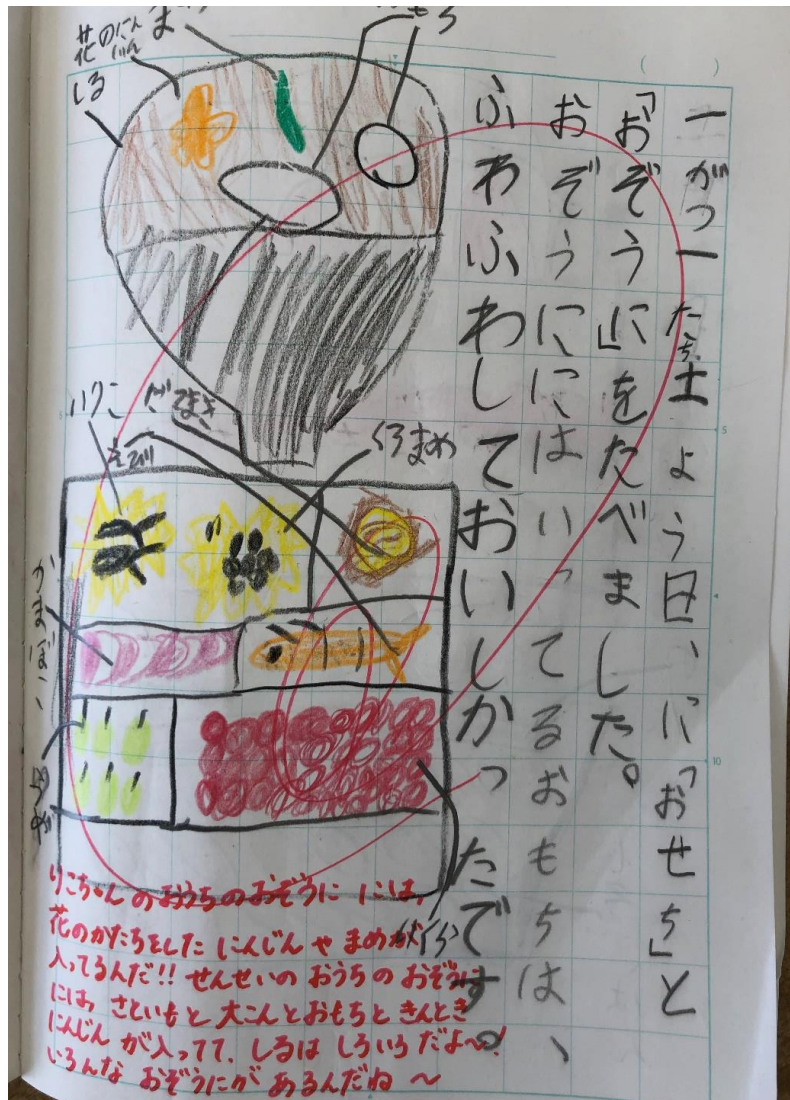 一がつ一たち土よう日、に「おせち」と
「おぞうに」をたべました。
おぞうににはいってるおもちは、
ふわふわしておいしかったです。
花のにんじん
まめ
おもち
しる
いりこ
だてまき
えび
くろまめ
かまぼこ
いくら
りこちゃんのおうちのおぞうにには、
花のかたちをした にんじん や まめが
入ってるんだ!! せんせいの おうちの おぞうに
には、さといもと 大こんとおもちと きんとき
にんじん が入ってて、しるは しろいろ だよ〜!
いろんな おぞうにが あるんだね 〜